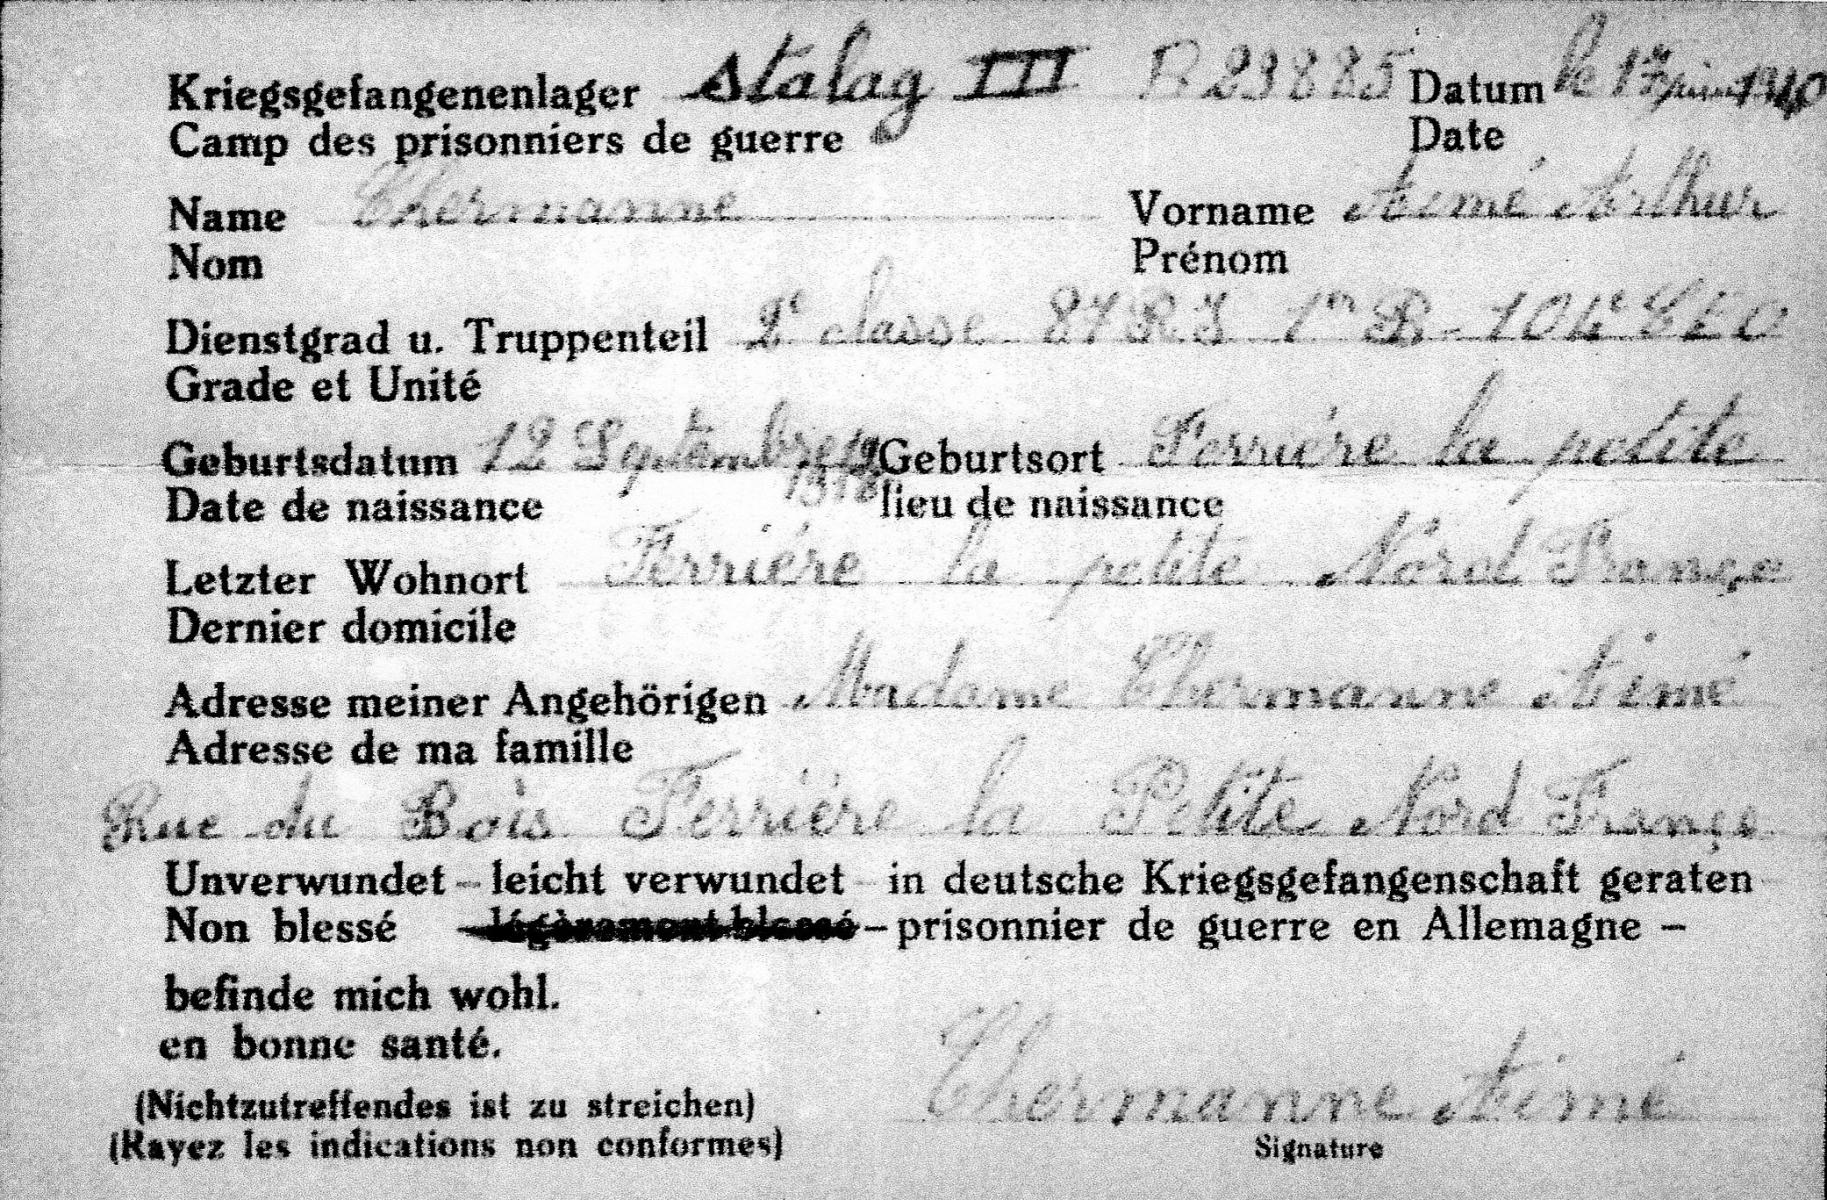 Kriegsgefangenenlager stalag III B 29885 Datum le 17 juin 1940
Camp des prisonniers de guerre Date
Name Thermanne Vorname Aimé Arthur
Nom Prénom
Dienstgrad u. Truppenteil 2e classe 87 R I 1er B - 104e
Grade et Unité
Geburtsdatum 12 Septembre Geburtsort Ferriére la petite
Date de naissance lieu de naissance
Letzter Wohnort Ferriére la petite Nord Françe
Dernier domicile
Adresse meiner Angehörigen Madame Thermanne Aimé
Adresse de ma famille
Rue du Bois Ferriére la Petite Nord Françe
Unverwundet – leicht verwundet – in deutsche Kriegsgefangenschaft geraten
Non blessé – légèrement blessé – prisonnier de guerre en Allemagne –
befinde mich wohl.
en bonne santé.
Thermanne Aimé
(Nichtzutreffendes ist zu streichen)
(Rayez les indications non conformes) Signature